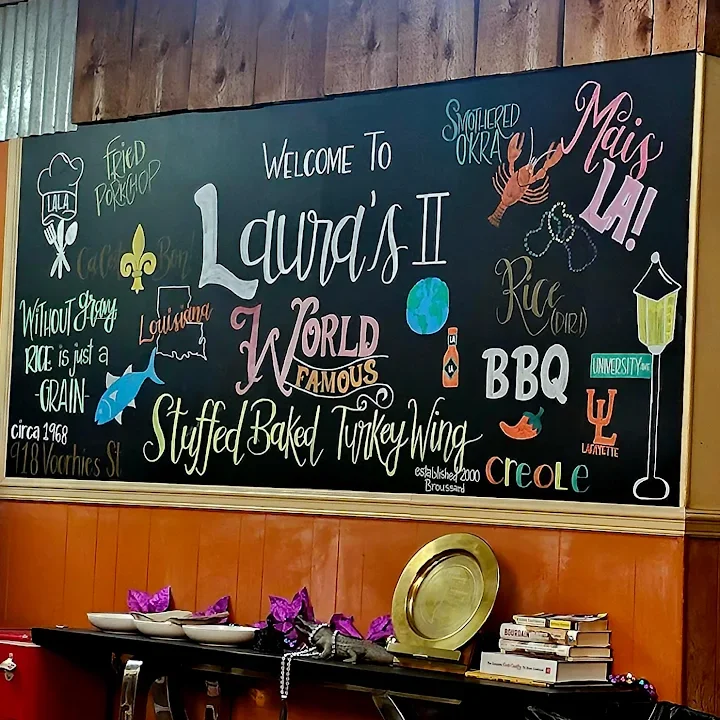 WELCOME TO
Laura's II
WORLD
FAMOUS
Stuffed Baked Turkey Wing
established 2000
Broussard
LALA
FRIED
PORKCHOP
Ca C'est Bon!
WITHOUT gravy,
RICE is just a
-GRAIN-
Louisiana
circa 1968
918 Voorhies St
SMOTHERED
OKRA
Mais
LA!
Rice
(DIRI)
LA
LA
BBQ
UNIVERSITY AVE
UL
LAFAYETTE
creole
BOURDAIN